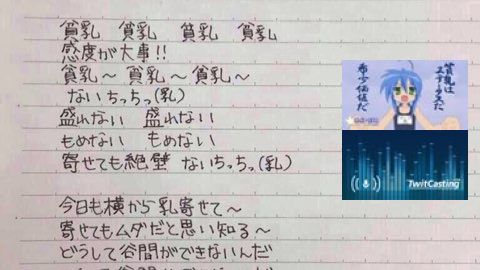 貧乳 貧乳 貧乳 貧乳
感度が大事!!
貧乳～貧乳～貧乳～
ないちっちっ(乳)
盛れない 盛れない
もめない もめない
寄せても絶壁 ないちっちっ(乳)
今日も横から乳寄せて～
寄せてもムダだと思い知る～
どうして谷間ができないんだ
貧乳は
ステータスだ
希少価値だ
TwitCasting